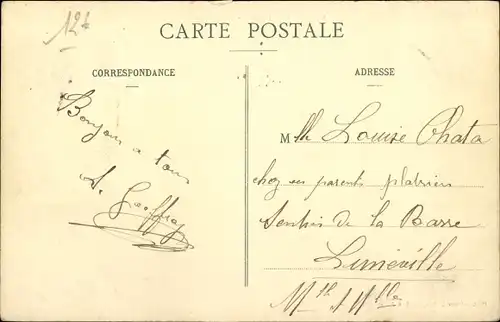 12f
CARTE POSTALE
CORRESPONDANCE
ADRESSE
Bonjour a tous
Mlle Louise Chata
chez ses parents platrier
Sentier de la Barre
Lunéville
Mthe et Mlle